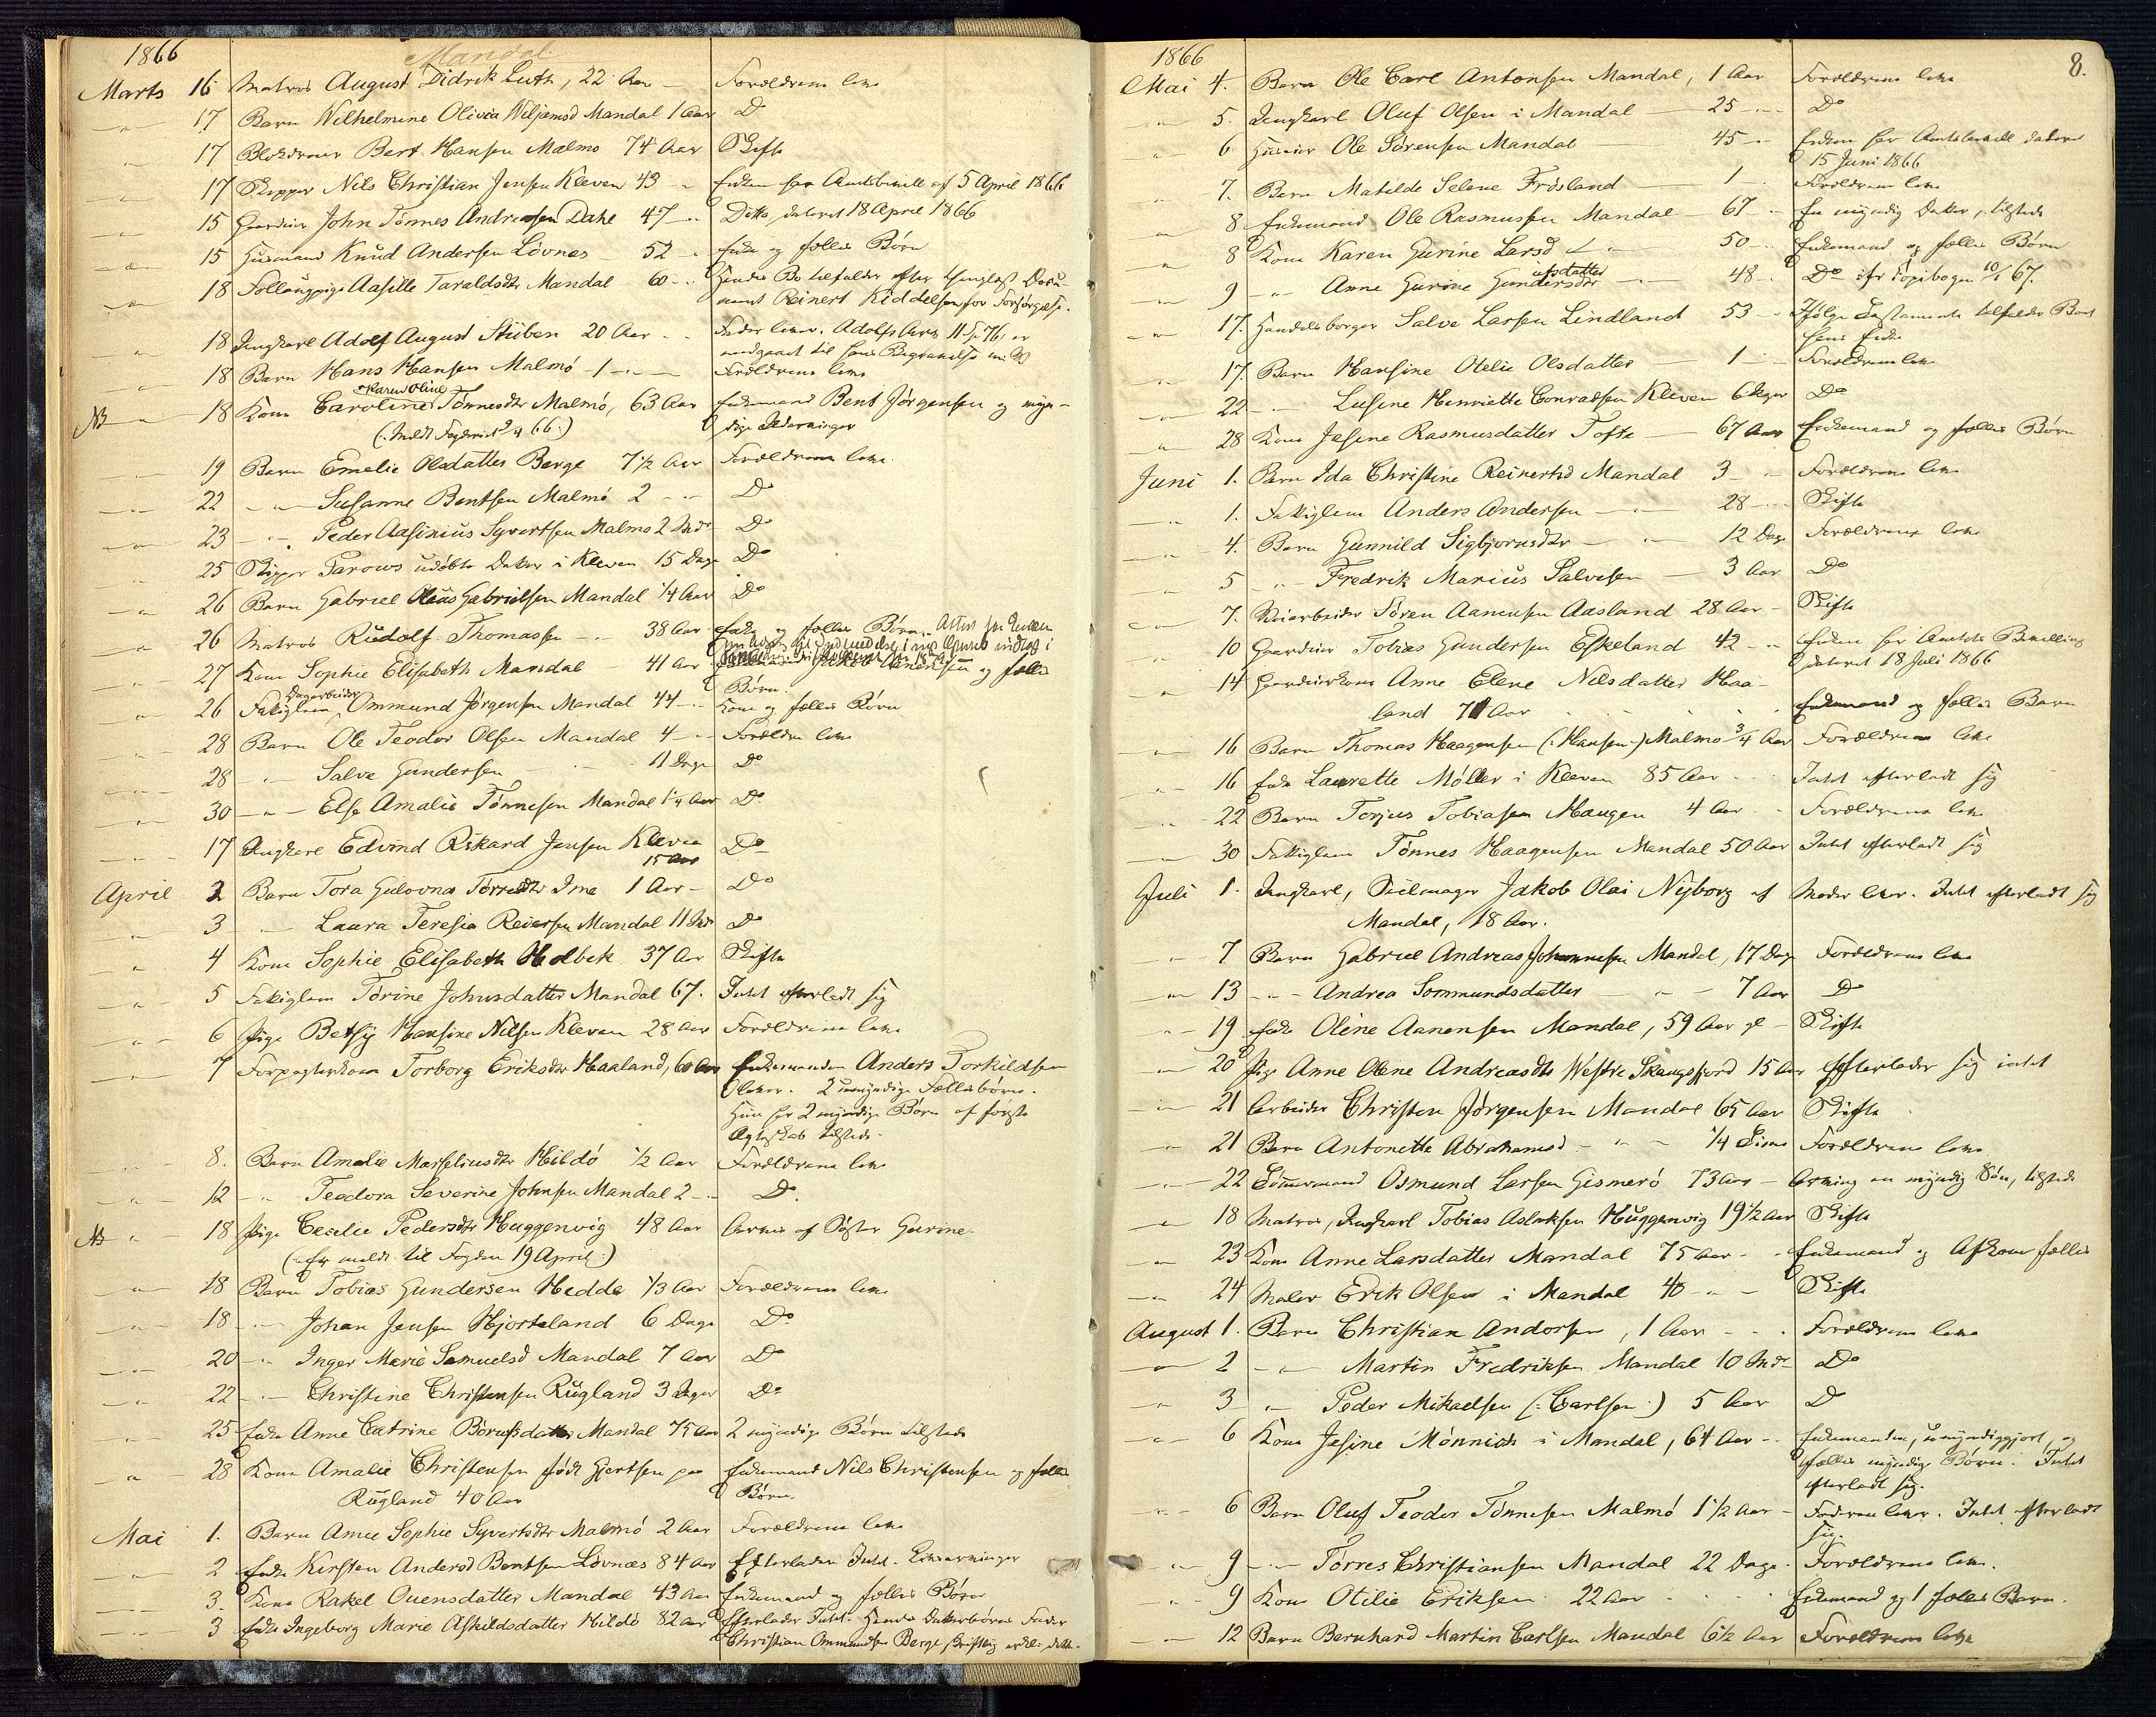 1866 Mandal
Marts 16 Matros August Didrik Luth, 22 Aar – Forældrene leve
17 Barn Wilhelmine Olivia Wiljamsd Mandal 1 Aar Do
17 Blokdreier Bert Hansen Malmø 74 Aar Skifte
17 Skipper Nils Christian Jensen Kleven 43 Enken har Amtsbevill af 5 April 1866
15 Gaardmr John Tønnes Andreasen Dahl 47 Ditto, dateret 18 April 1866
15 Husmand Knud Andersen Løvnes 52 Enke og fælles Børn
18 Aasille Taraldsdtr Mandal 60 Hendes Bo tilfalder efter thinglæst Docu-
ment Reinert Kiddelsen for Forsørgelse.
18 Ungkarl Adolf August Stüben 20 Aar Fader lever. Adolfs Arv er
medgaaet til hans Begravelse
18 Barn Hans Hansen Malmø 1 Forældrene leve
Karen Oline
NB 18 Kone Caroline Tønnesdtr Malmø, 63 Aar Enkemand Bent Jørgensen og myn-
(meldt Fogderiet 9/4 66.) dige Udarvinger
19 Barn Emelie Olsdatter Berge 7 1/2 Aar Forældrene leve
22 Susanne Bentsen Malmø 2 Do
23 Peder Aasinius Syvertsen Malmø 2 Mdr Do
25 Skipper Parows udøbte Datter i Kleven 15 Dage Do
26 Barn Gabriel Olaus Gabrielsen Mandal 1/4 Aar Do
26 Matros Rudolf Thomassen 38 Aar Enke og fælles Børn. Attest
27 Kone Sophie Elisabeth Mandal 41 Aar og fælles
Børn.
Dagarbeider
26 Fattiglem Ommund Jørgensen Mandal 44 Kone og fælles Børn
28 Barn Ole Teodor Olsen Mandal 4 Forældre leve
28 Salve Gundersen 11 Dage Do
30 Else Amalie Tønnesen Mandal 1 1/4 Aar Do
17 Ungkarl Edvind Rikard Jensen Kleven Do
15 Aar
April 2 Barn Tora Gulovna Tørresdtr Ime 1 Aar Do
3 Laura Teresia Reiersen Mandal 11 Mdr Do
4 Kone Sophie Elisabeth Holbek 37 Aar Skifte
5 Fattiglem Tørine Johnsdatter Mandal 67. Intet efterladt sig
6 Pige Betsy Hansine Nilsen Kleven 28 Aar Forældrene leve
7 Forpagterkone Torborg Eriksdtr Haaland, 60 Aar Enkemanden Anders Torkildsen
lever. 2 umyndige Fællesbørn.
Hun har 2 myndige Børn af første
Ægteskab tilstede
8. Barn Amalie Marseliusdtr Hildø 1/2 Aar Forældrene leve
12 Teodora Severine Johnsen Mandal 2 Do.
NB 18 Pige Cecilie Pedersdtr Huggenvig 48 Aar Arves af Søster Gurine.
(Er meldt til Fogden 19 April)
18 Barn Tobias Gundersen Hedde 1/3 Aar Forældrene leve
18 Johan Jensen Hjorteland 6 Dage Do
20 Inger Marie Samuelsd Mandal 7 Aar Do
22 Christine Christensen Rugland 3 Dager Do
25 Enke Anne Catrine Børufsdatter Mandal 75 Aar 2 myndige Børn tilstede
28 Kone Amalie Christensen født Gjertsen paa Enkemand Nils Christensen og fælles
Rugland 40 Aar Børn.
Mai 1. Barn Amee Sophie Syvertsdtr Malmø 2 Aar Forældrene leve
2 Enke Kirsten Andersd Bentsen Løvnæs 84 Aar Efterlader Intet. Livsarvinger
3. Kone Rakel Ouensdatter Mandal 43 Aar Enkemand og fælles Børn
3 Enke Ingeborg Marie Askildsdatter Hildø 82 Aar Efterlader Intet. Hendes Datterbørns Fader
Christian Ommundsen Berge skriftlig
1866 8.
Mai 4. Barn Ole Carl Antonsen Mandal, 1 Aar Forældrene leve
5. Ungkarl Oluf Olsen i Mandal 25 Do
6 Huseier Ole Sørensen Mandal 45 Enken har Amtsbevill dateret
15 Juni 1866
7. Barn Matilde Selene Frøsland 1 Forældrene leve
8 Enkemand Ole Rasmussen Mandal 67 En myndig Datter, tilstede
8 Kone Karen Gurine Larsd 50 Enkemand og fælles Børn
ufsdatter
9 Anne Gurine Gundersdtr 48 Do cfr Copibogen 10/1 67.
17. Handelsborger Salve Larsen Lindland 53 Ifølge Testamente tilfalder Boet
hans Enke
17. Barn Hansine Otelie Olsdatter 1 Forældrene leve
22 Lusine Henriette Conradsen Kleven 6 Dager Do
28 Kone Jasine Rasmusdatter Tofte 67 Aar Enkemand og fælles Børn
Juni 1. Barn Ida Christine Reinertsd Mandal 3 Forældrene leve
1. Fattiglem Anders Andersen 28 Skifte
4. Barn Gunnild Sigbjørnsdtr 12 Dage Forældrene leve
5 Fredrik Marius Salvesen 3 Aar Do
7. Veiarbeider Søren Aanensen Aasland 28 Aar Skifte
10 Gaardmr Tobias Gundersen Eskeland 42 Enken har Amtets Bevilling
dateret 18 Juli 1866
14 Gaardmrkone Anne Elene Nilsdatter Haa-
land 71 Aar Enkemand og fælles Barn
16 Barn Thomas Haagensen (Hansen) Malmø 3/4 Aar Forældrene leve
16 Enke Laurette Møller i Kleven 85 Aar Intet efterladt sig
22 Barn Torjus Tobiasen Haugen 4 Aar Forældrene leve
30 Fattiglem Tønnes Haagensen Mandal 50 Aar Intet efterladt sig
Juli 1. Ungkarl, Seilmager Jakob Olai Nyborg af Moder lever. Intet efterladt sig
Mandal, 18 Aar.
7 Barn Gabriel Andreas Johannesen Mandal, 17 Dage Forældrene leve
13 Andrea Sommundsdatter 7 Aar Do
19 Enke Oline Aanensen Mandal, 59 Aar gl Skifte
20 Pige Anne Oline Andreasdtr Westre Skaugsfjord 15 Aar Efterlader sig intet
21 Arbeider Christen Jørgensen Mandal 65 Aar Skifte
21 Barn Antonette Abrahamsd 1/4 Time Forældrene leve
22 Tømmermand Osmund Larsen Gismerø 73 Aar Arving en myndig Søn, tilstede
18 Matros, Ungkarl Tobias Aslaksen Huggenvig 19 1/2 Aar Skifte
23 Kone Anne Larsdatter Mandal 75 Aar Enkemand og Afkom fælles
24 Maler Erik Olsen i Mandal 40 Skifte
August 1. Barn Christian Andorsen, 1 Aar Forældrene leve
2 Martin Fredriksen Mandal 10 Mdr Do
3 Peder Mikaelsen (Carlsen) 5 Aar Do
6 Kone Jasine Mønnich i Mandal, 64 Aar Enkemanden, umyndiggjort, og
fælles myndige Børn. Intet
efterladt sig.
6 Barn Oluf Teodor Tønnesen Malmø 1 1/2 Aar Faderen lever. Intet efterladt
sig.
9 Tørres Christiansen Mandal 22 Dage Forældrene leve.
9 Kone Otilie Eriksen 22 Aar Enkemand og 1 fælles Barn.
12 Barn Bernhard Martin Carlsen Mandal 6 1/2 Aar Forældrene leve